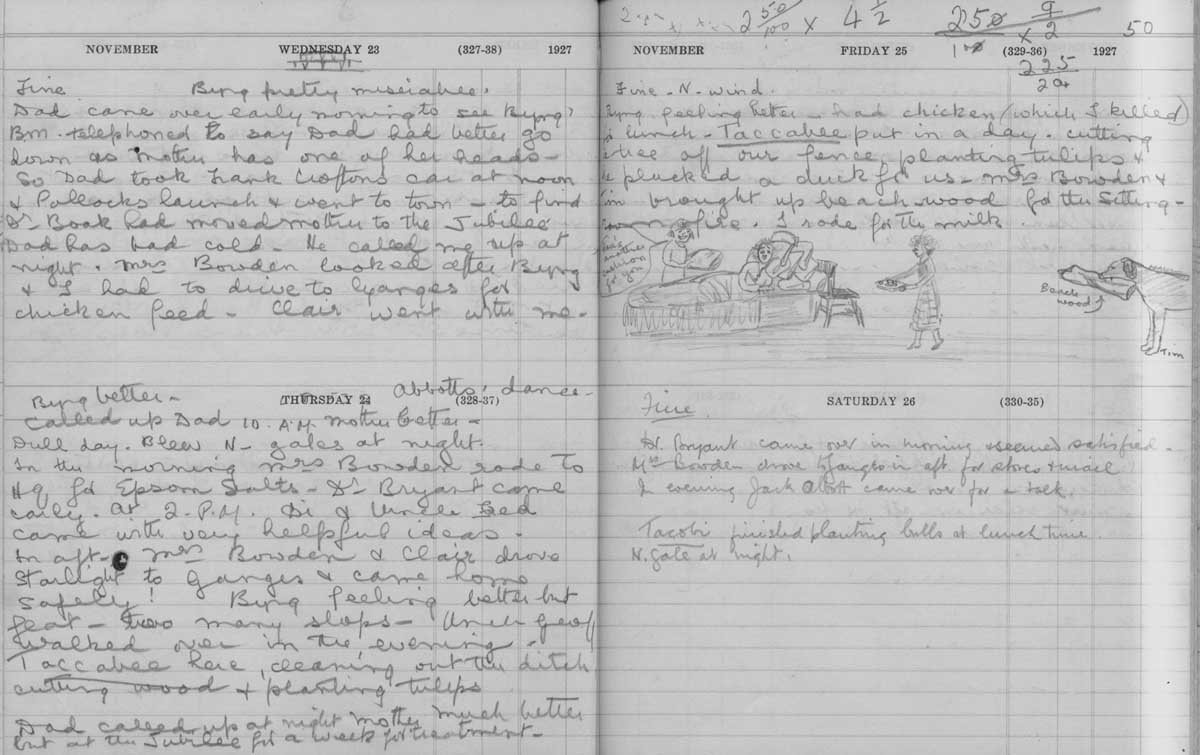 NOVEMBER WEDNESDAY 23 (327-38) 1927
Fine Byng pretty miserable.
Dad came over early morning to see Byng.
Bm. telephoned to say Dad had better go
down as mother has one of her heads -
So Dad took Frank Croftons car at noon
& Pollocks launch & went to town - to find
Dr Book had moved mother to the Jubilee
Dad has bad cold - He called me up at
night. Mrs Bowden looked after Byng
& I had to drive to Ganges for
chicken feed - Clair went with me.
Byng better - Abbotts' dance -
THURSDAY 24 (328-37)
Called up Dad 10. A.M. Mother better -
Dull day. Blew N - gales at night.
In the morning Mrs Bowden rode to
HQ for Epsom Salts - Dr Bryant came
early. At 2. P.M. Di & Uncle
came with very helpful ideas.
In aft - Mrs Bowden & Clair drove
Starlight to Ganges & came home
safely! Byng feeling better but
- too many slops - Uncle Geoff
walked over in the evening.
Taccabee here, cleaning out the ditch
cutting wood & planting tulips
Dad called up at night Mother much better
but at the Jubilee for a week for treatment -
2 50/100 x 4 1/2 250 9 50
100 x 2
225
NOVEMBER FRIDAY 25 (329-36) 1927
Fine - N - wind.
Byng feeling better - had chicken (which I killed)
lunch - Taccabee put in a day. cutting
tree off our fence, planting tulips &
plucked a duck for us - Mrs Bowden &
Tim brought up beach wood for the sitting-
room fire. I rode for the milk.
another
for you
Beach
wood
Tim
SATURDAY 26 (330-35)
Fine.
Dr. Bryant came over in morning & seemed satisfied.
Mrs Bowden drove to Ganges in aft for stores & mail
In evening Jack Abbott came over for a talk.
Tacobi finished planting bulbs at lunch time.
N. gale at night.